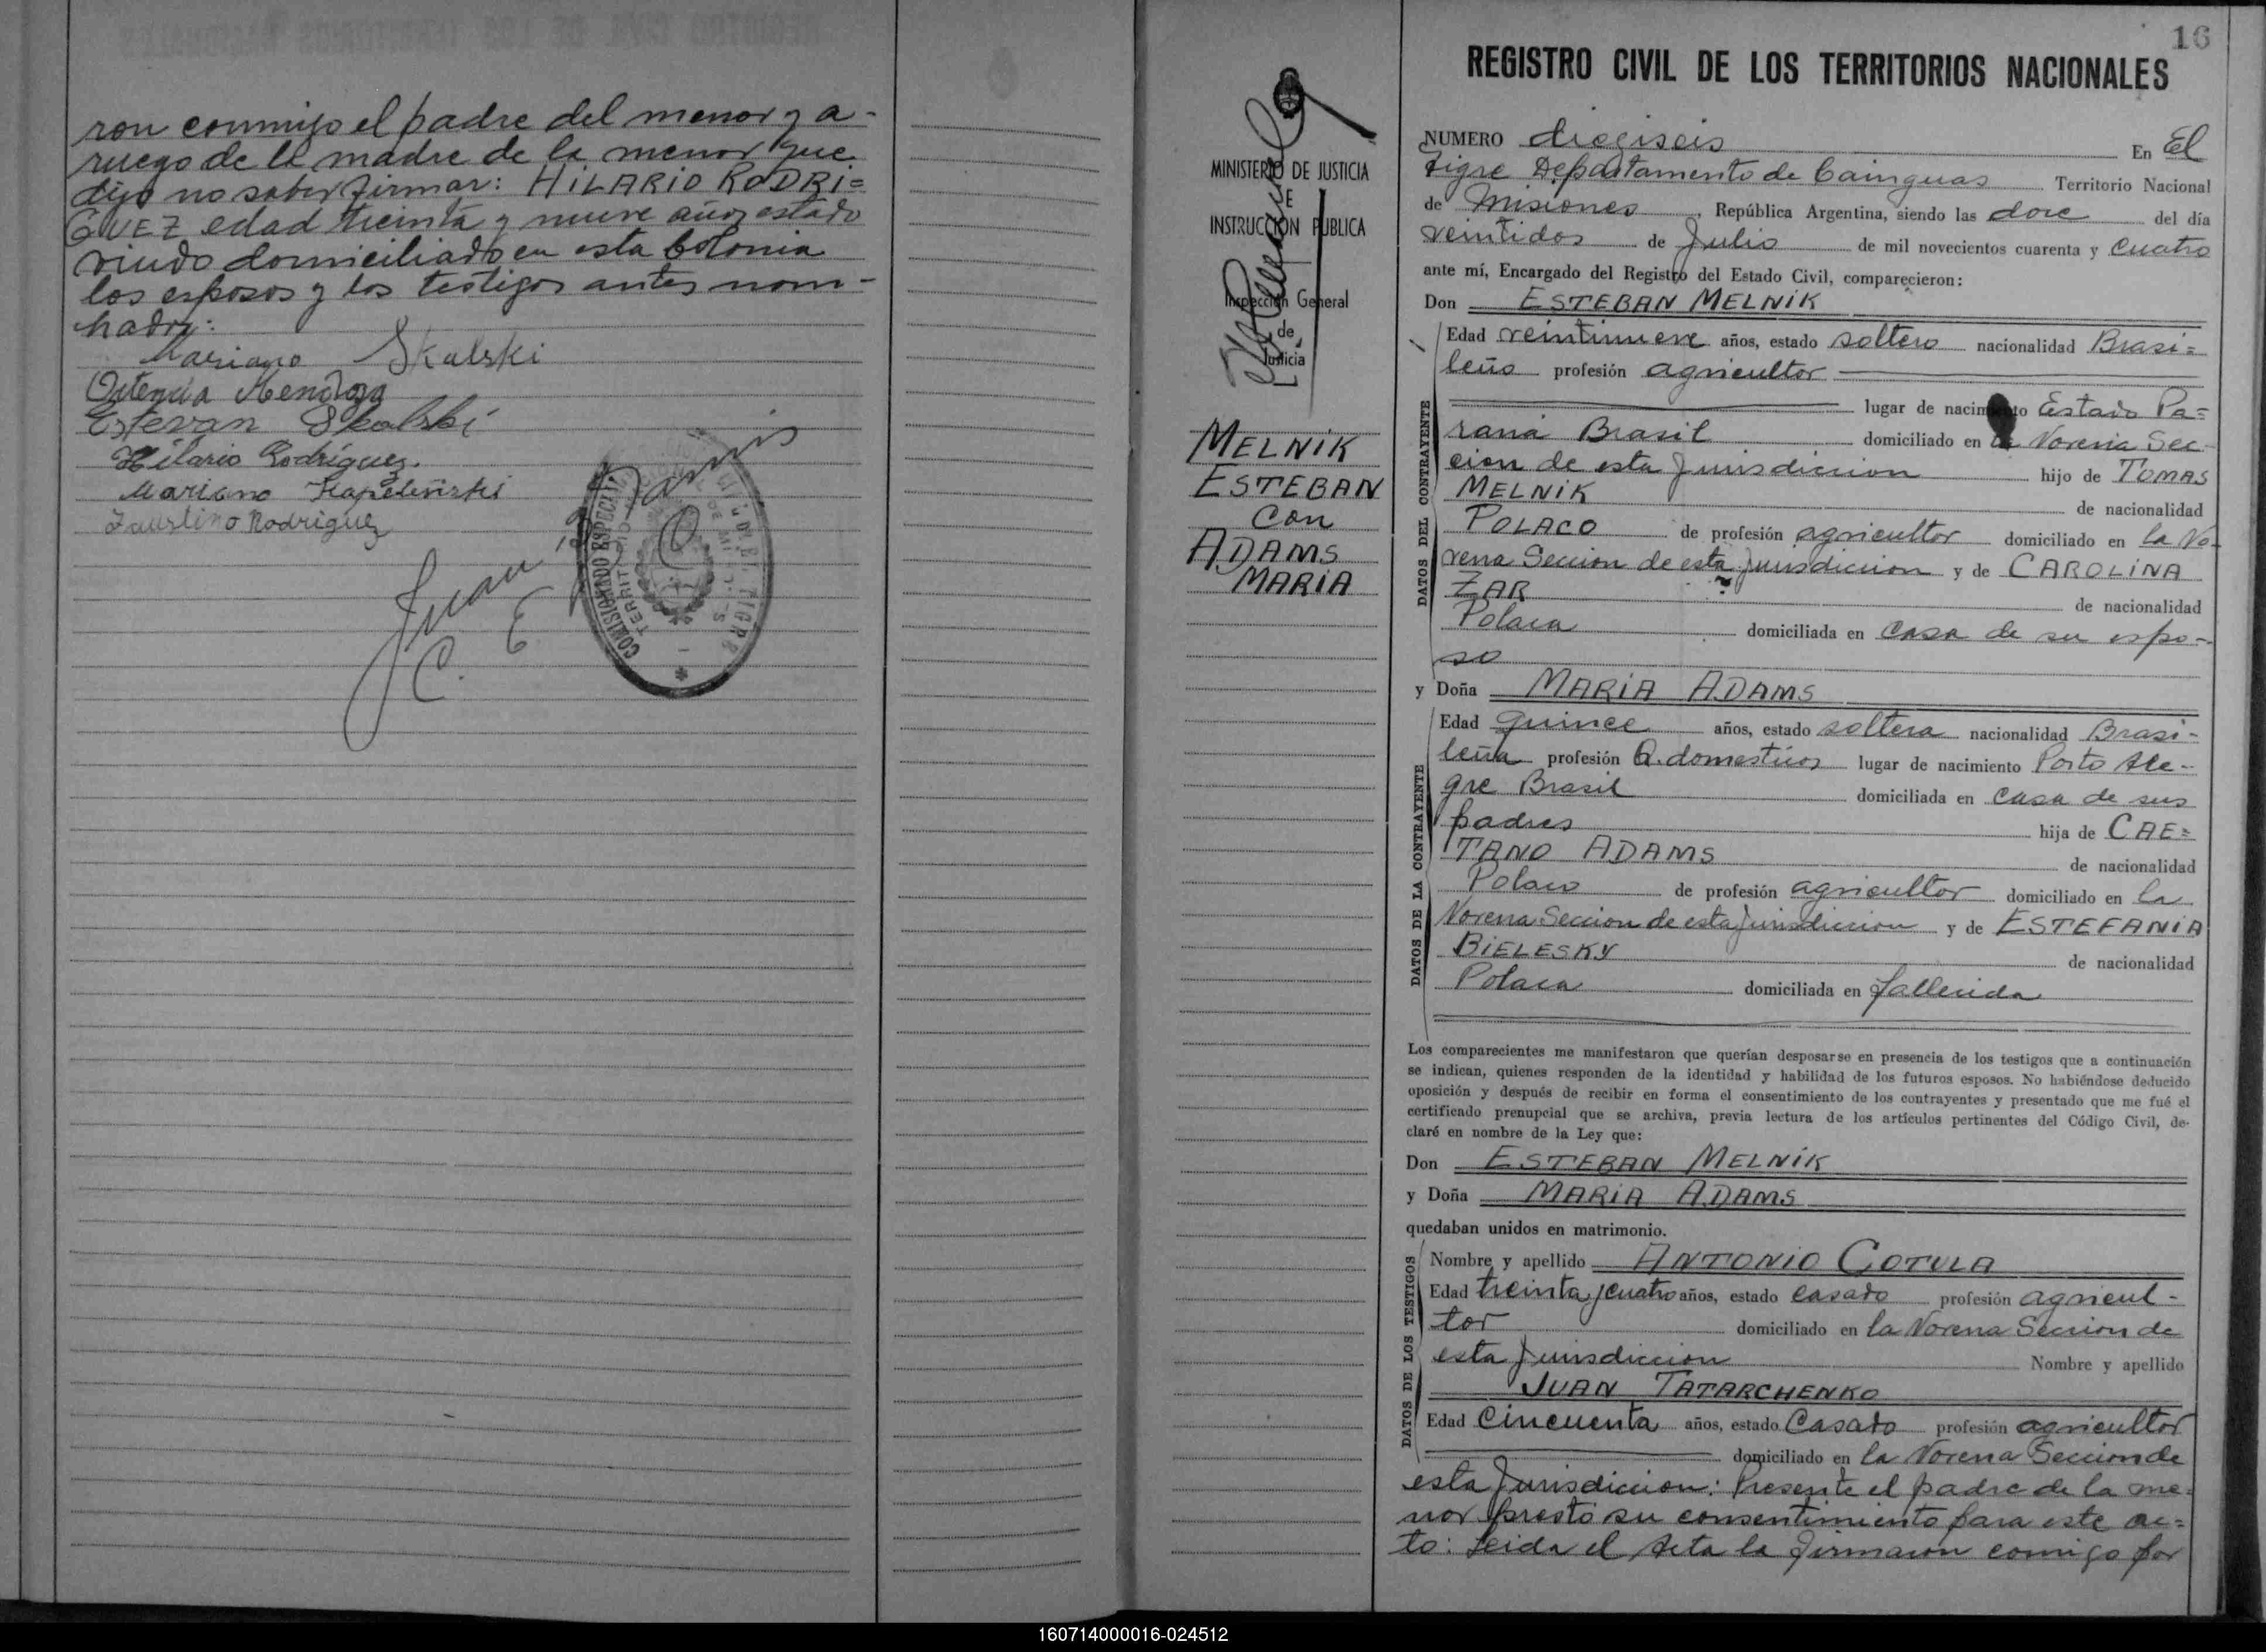 ron conmigo el padre del menor y a-
ruego de la madre de la menor que
dijo no saber firmar: HILARIO RODRI=
GUEZ edad treinta y nueve años estado
viudo domiciliado en esta Colonia
los esposos y los testigos antes nom-
bados:
Mariano Skalski
Ortencia Mendoza
Estevan Skalski
Hilario Rodríguez.
Mariano
Faustino Rodriguez
Juan
C. E.
COMISIONADO ESPECIAL
16
REGISTRO CIVIL DE LOS TERRITORIOS NACIONALES
MINISTERIO DE JUSTICIA
E
INSTRUCCIÓN PUBLICA
Inspección General
de
Justicia
MELNIK
ESTEBAN
Con
ADAMS
MARIA
NUMERO dieciseis En El
Tigre Departamento de Cainguas Territorio Nacional
de Misiones, República Argentina, siendo las doce del día
veintidos de Julio de mil novecientos cuarenta y cuatro
ante mí, Encargado del Registro del Estado Civil, comparecieron:
Don ESTEBAN MELNIK
DATOS DEL CONTRAYENTE
Edad veintinueve años, estado soltero nacionalidad Brasi=
leño profesión agricultor
lugar de nacimiento Estado Pa=
raná Brasil domiciliado en la Novena Sec-
cion de esta Jurisdiccion hijo de TOMAS
MELNIK de nacionalidad
POLACO de profesión agricultor domiciliado en la No-
vena Seccion de esta Jurisdiccion y de CAROLINA
ZAR de nacionalidad
Polaca domiciliada en casa de su espo-
so
y Doña MARIA ADAMS
DATOS DE LA CONTRAYENTE
Edad quince años, estado soltera nacionalidad Brasi-
leña profesión Q. domesticos lugar de nacimiento Porto Ale-
gre Brasil domiciliada en casa de sus
padres hija de CAE=
TANO ADAMS de nacionalidad
Polaco de profesión agricultor domiciliado en la
Novena Seccion de esta Jurisdiccion y de ESTEFANIA
BIELESKY de nacionalidad
Polaca domiciliada en fallecida
Los comparecientes me manifestaron que querían desposarse en presencia de los testigos que a continuación
se indican, quienes responden de la identidad y habilidad de los futuros esposos. No habiéndose deducido
oposición y después de recibir en forma el consentimiento de los contrayentes y presentado que me fué el
certificado prenupcial que se archiva, previa lectura de los artículos pertinentes del Código Civil, de-
claré en nombre de la Ley que:
Don ESTEBAN MELNIK
y Doña MARIA ADAMS
quedaban unidos en matrimonio.
DATOS DE LOS TESTIGOS
Nombre y apellido ANTONIO COTULA
Edad treinta y cuatro años, estado casado profesión agricul-
tor domiciliado en la Novena Seccion de
esta Jurisdiccion Nombre y apellido
JUAN TATARCHENKO
Edad Cincuenta años, estado Casado profesión agricultor
domiciliado en la Novena Seccion de
esta Jurisdiccion: Presente el padre de la me=
nor presto su consentimiento para este ac=
to: Leida el Acta la firmaron comigo por
160714000016-024512